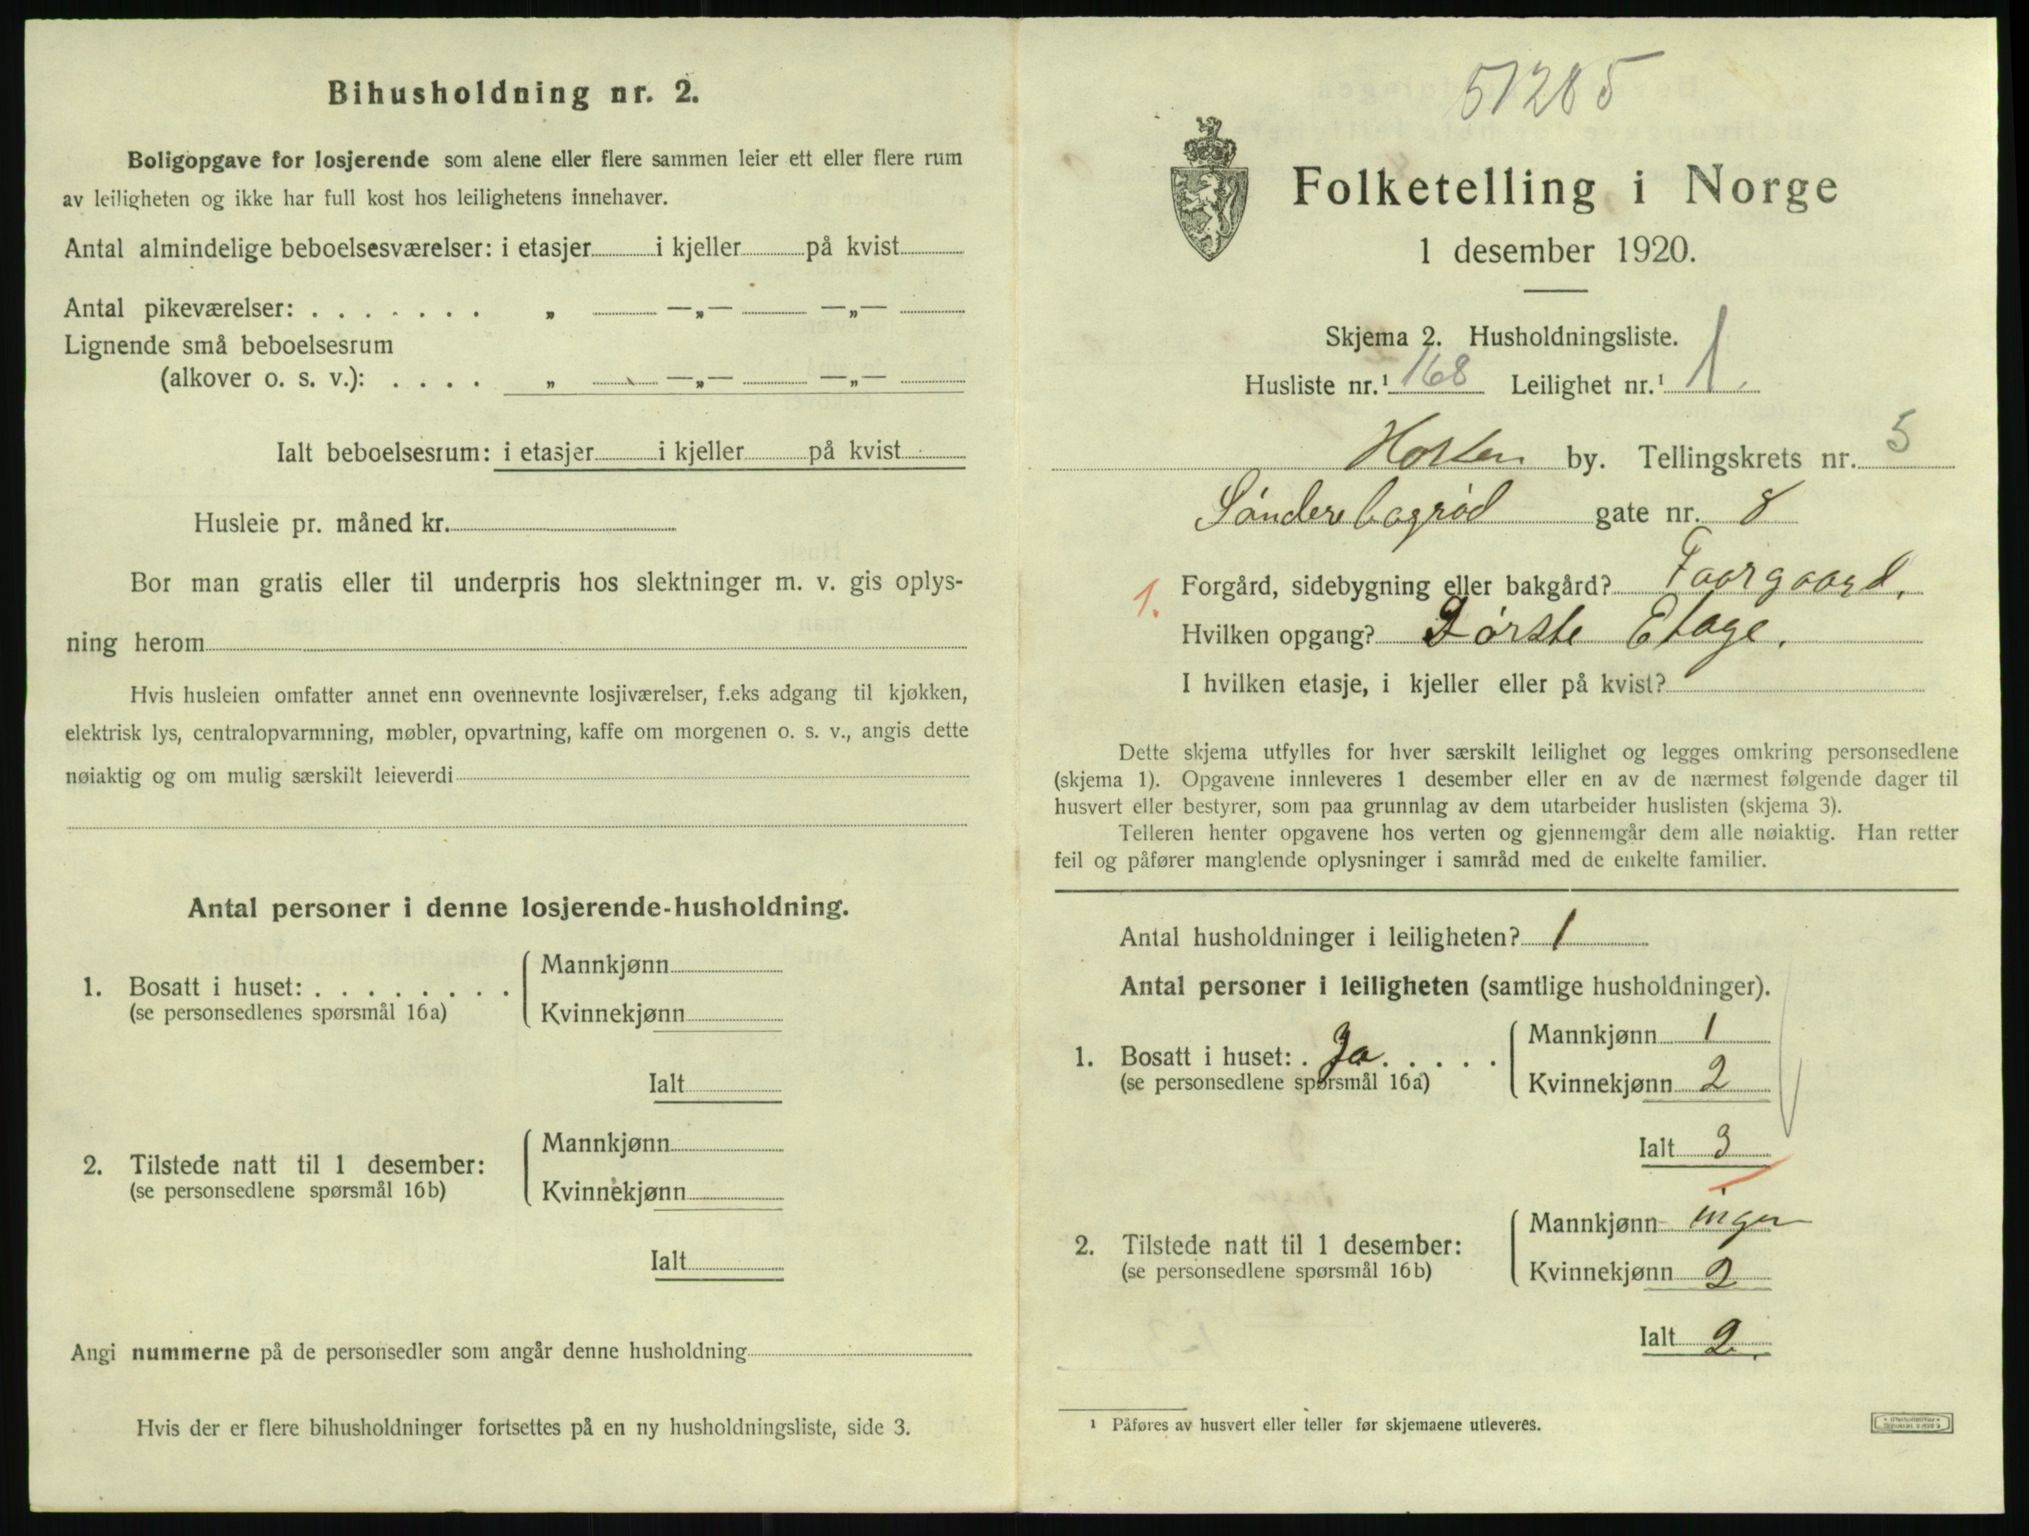 Bihusholdning nr. 2.
Boligopgave for losjerende som alene eller flere sammen leier ett eller flere rum
av leiligheten og ikke har full kost hos leilighetens innehaver.
Antal almindelige beboelsesværelser: i etasjer i kjeller på kvist
Antal pikeværelser: . . . . . . . „ —„— —„—
Lignende små beboelsesrum
(alkover o. s. v.): . . . . „ —„— —„—
Ialt beboelsesrum: i etasjer i kjeller på kvist
Husleie pr. måned kr.
Bor man gratis eller til underpris hos slektninger m. v. gis oplys-
ning herom
Hvis husleien omfatter annet enn ovennevnte losjiværelser, f.eks adgang til kjøkken,
elektrisk lys, centralopvarmning, møbler, opvartning, kaffe om morgenen o. s. v., angis dette
nøiaktig og om mulig særskilt leieverdi
Antal personer i denne losjerende-husholdning.
1. Bosatt i huset: . . . . . . . .
(se personsedlenes spørsmål 16a)
Mannkjønn
Kvinnekjønn
Ialt
2. Tilstede natt til 1 desember:
(se personsedlene spørsmål 16b)
Mannkjønn
Kvinnekjønn
Ialt
Angi nummerne på de personsedler som angår denne husholdning
Hvis der er flere bihusholdninger fortsettes på en ny husholdningsliste, side 3.
51285
Folketelling i Norge
1 desember 1920.
Skjema 2. Husholdningsliste.
Husliste nr.¹ 168 Leilighet nr.¹ 1.
Horten by. Tellingskrets nr. 5
Søndere bagrød gate nr. 8
1. Forgård, sidebygning eller bakgård? Faargaard.
Hvilken opgang? Første Etage.
I hvilken etasje, i kjeller eller på kvist?
Dette skjema utfylles for hver særskilt leilighet og legges omkring personsedlene
(skjema 1). Opgavene innleveres 1 desember eller en av de nærmest følgende dager til
husvert eller bestyrer, som paa grunnlag av dem utarbeider huslisten (skjema 3).
Telleren henter opgavene hos verten og gjennemgår dem alle nøiaktig. Han retter
feil og påfører manglende oplysninger i samråd med de enkelte familier.
Antal husholdninger i leiligheten? 1
Antal personer i leiligheten (samtlige husholdninger).
1. Bosatt i huset: . Ja . . . . .
(se personsedlene spørsmål 16a)
Mannkjønn 1
Kvinnekjønn 2
Ialt 3
2. Tilstede natt til 1 desember:
(se personsedlene spørsmål 16b)
Mannkjønn ingen
Kvinnekjønn 2
Ialt 2.
¹ Påføres av husvert eller teller før skjemaene utleveres.